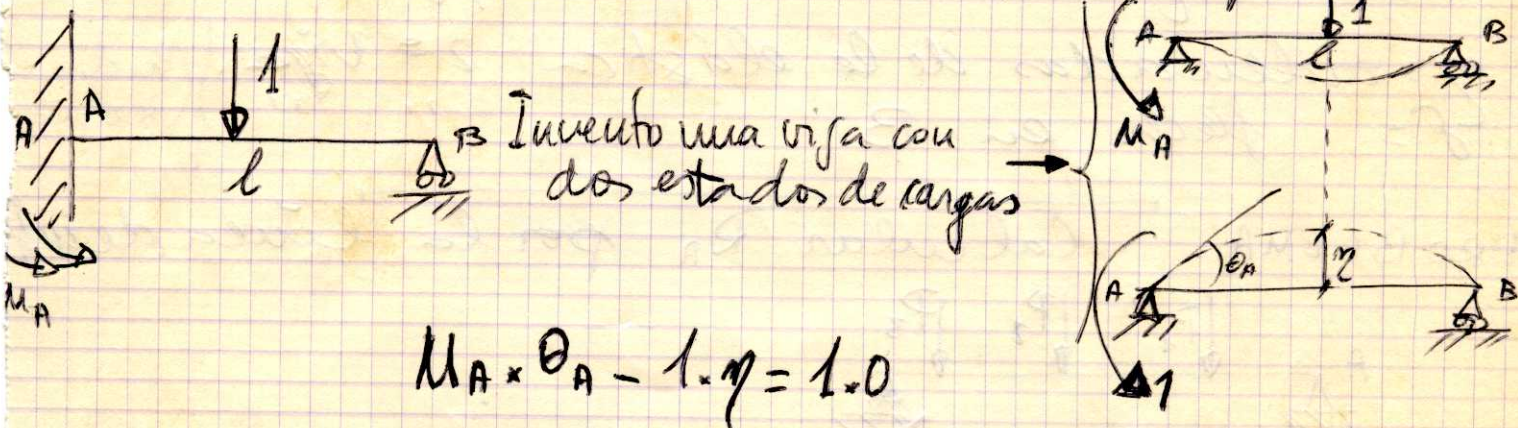 A
A
1
l
B
M_A
Invento una viga con
dos estados de cargas
1
A
l
B
M_A
θ_A
η
A
B
1
M_A × θ_A - 1 × η = 1 × 0